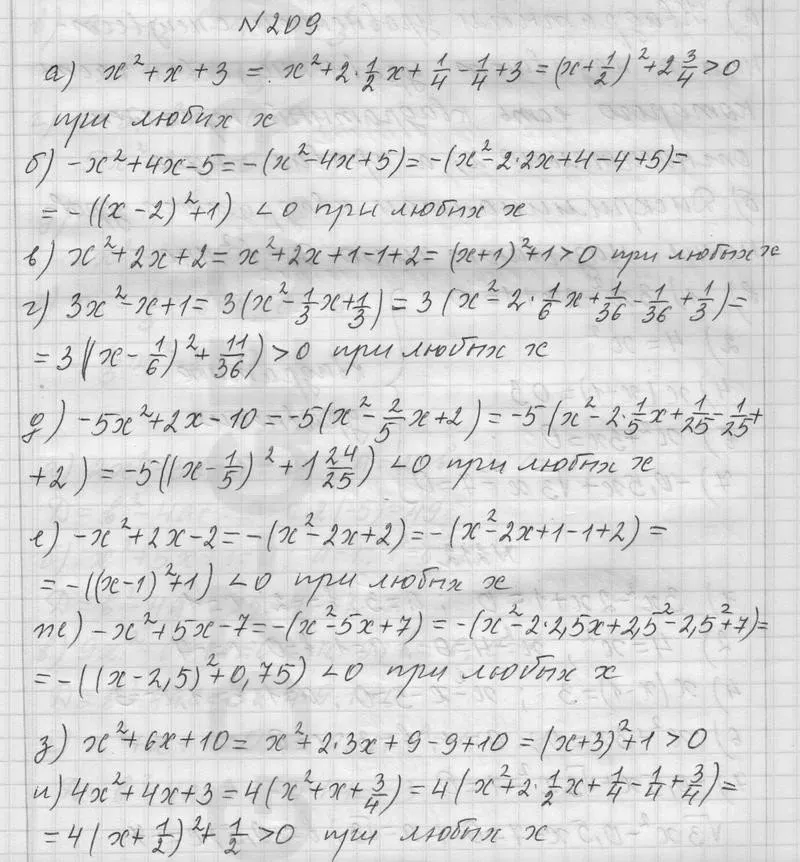 №209
а) x² + x + 3 = x² + 2·1/2x + 1/4 - 1/4 + 3 = (x + 1/2)² + 2 3/4 > 0
при любых x
б) -x² + 4x - 5 = -(x² - 4x + 5) = -(x² - 2·2x + 4 - 4 + 5) =
= -((x - 2)² + 1) < 0 при любых x
в) x² + 2x + 2 = x² + 2x + 1 - 1 + 2 = (x + 1)² + 1 > 0 при любых x
г) 3x² - x + 1 = 3(x² - 1/3x + 1/3) = 3(x² - 2·1/6x + 1/36 - 1/36 + 1/3) =
= 3((x - 1/6)² + 11/36) > 0 при любых x
д) -5x² + 2x - 10 = -5(x² - 2/5x + 2) = -5(x² - 2·1/5x + 1/25 - 1/25 +
+ 2) = -5((x - 1/5)² + 1 24/25) < 0 при любых x
е) -x² + 2x - 2 = -(x² - 2x + 2) = -(x² - 2x + 1 - 1 + 2) =
= -((x - 1)² + 1) < 0 при любых x
ж) -x² + 5x - 7 = -(x² - 5x + 7) = -(x² - 2·2,5x + 2,5² - 2,5² + 7) =
= -((x - 2,5)² + 0,75) < 0 при любых x
з) x² + 6x + 10 = x² + 2·3x + 9 - 9 + 10 = (x + 3)² + 1 > 0
и) 4x² + 4x + 3 = 4(x² + x + 3/4) = 4(x² + 2·1/2x + 1/4 - 1/4 + 3/4) =
= 4(x + 1/2)² + 1/2 > 0 при любых x